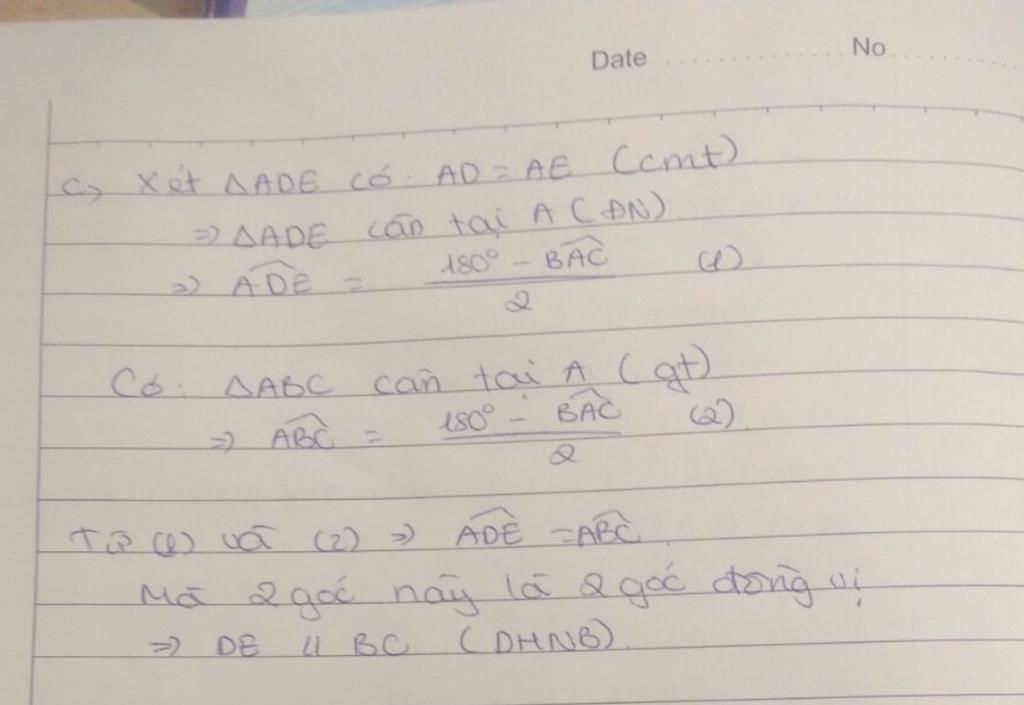 Date No
c, Xét ΔADE có: AD = AE (cmt)
=> ΔADE cân tại A (ĐN)
=> \widehat{ADE} = \frac{180° - \widehat{BAC}}{2} (1)
Có: ΔABC cân tại A (gt)
=> \widehat{ABC} = \frac{180° - \widehat{BAC}}{2} (2)
Từ (1) và (2) => \widehat{ADE} = \widehat{ABC}
Mà 2 góc này là 2 góc đồng vị
=> DE // BC (DHNB)